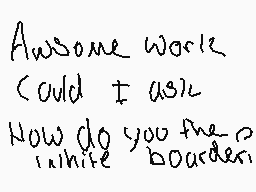 Awsome work
Could I ask
How do you the
white boarder